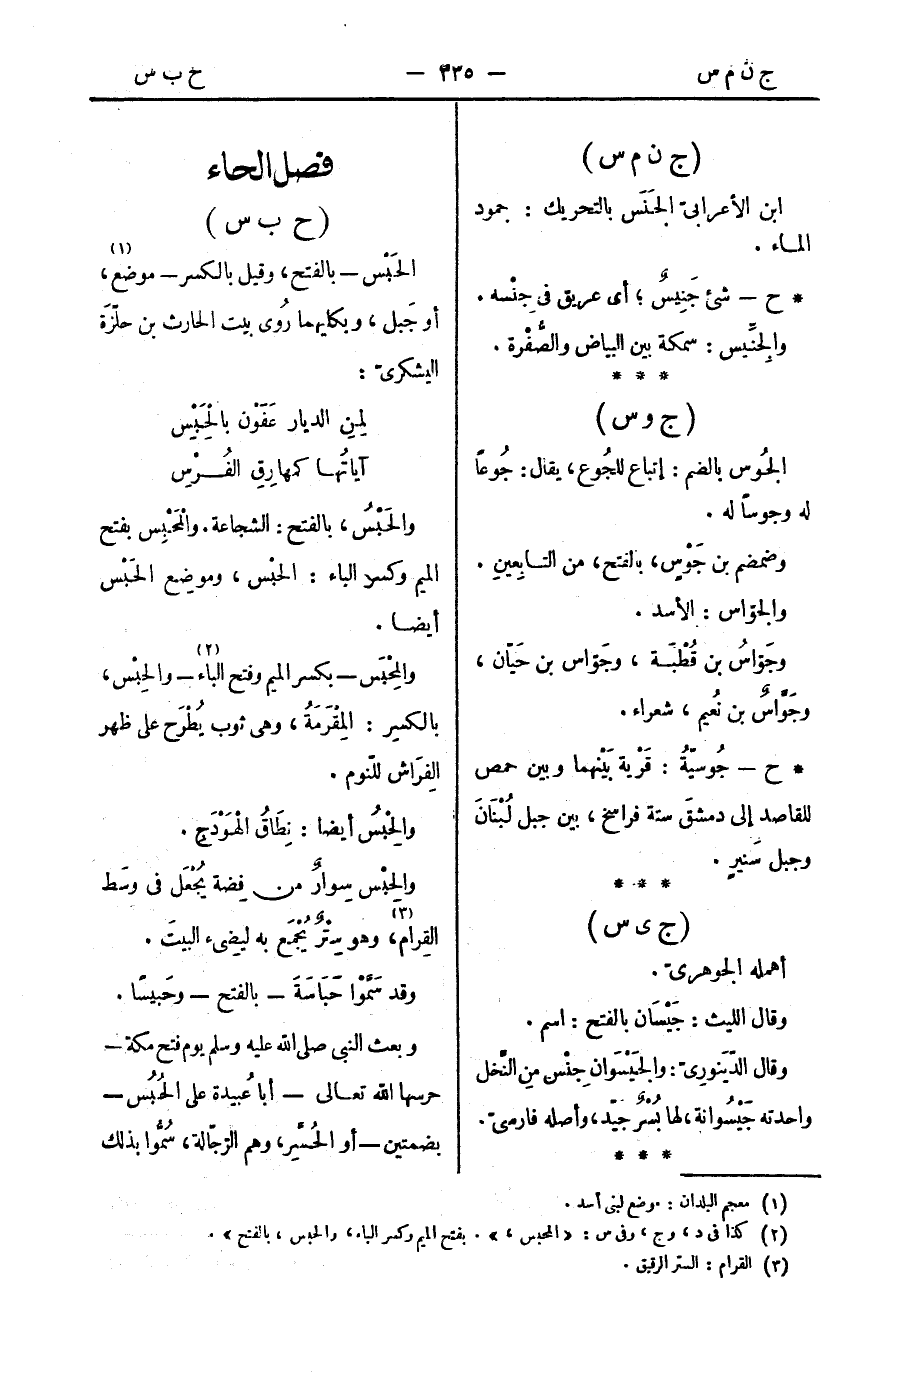 ج ن م س
— ٣٣٥ —
ح ب س
(ج ن م س)
ابن الأعرابىّ الجَنَس بالتحريك : جمود
المـاء .
* ح — شئ جَنِيسٌ ؛ أى عريق فى جِنْسه .
والجِنِّيس : سمكة بين البياض والصُّفْرة .
* * *
(ج و س)
الجُوس بالضم : إتباع للجُوع ، يقال : جُوعاً
له وجوساً له .
وضمضم بن جَوْسٍ ، بالفتح ، من التـابِعينِ .
والجوّاس : الأسد .
وجَوّاسُ بن قُطْبَـة ، وجَوّاس بن حَيّان ،
وجَوَّاسٌ بن نُعيم ، شعراء .
* ح — جُوسيّةُ : قَرْية بَيْنهما وبين حمص
للقاصد إلى دمشق ستة فراسخ ، بين جبل لُبْنَانَ
وجبل سَنيرٍ .
* * *
(ج ى س)
أهمله الجوهرىّ .
وقال الليث : جَيْسَان بالفتح : اسم .
وقال الدِّينورىّ : والجَيْسَوان جِنْس مِن النَّخل
واحدته جَيْسُوانة ، لها بُسْرٌ جيّد ، وأصله فارسىّ .
* * *
فصل الحاء
(ح ب س)
الحَبْس — بالفتح ، وقيل بالكسر — موضع (١) ،
أو جَبل ، وبكليهما رُوى بيت الحارث بن حلّزَة
اليشكرىّ :
لِمِنِ الديار عَفَوْن بالْحَبْسِ
آياتُهـا كمهارِقِ الفُـرْسِ
والحَبْسُ ، بالفتح : الشجاعة . والْمَحْبِس بفتح
الميم وكسر الباء : الحبْس ، وموضِع الحَبْس
أيضـا .
والمِحْبَس — بكسر الميم وفتح الباء (٢) — والحِبْس ،
بالكسر : المِقْرَمَةُ ، وهى ثوب يُطْرَح على ظهر
الفِرَاش للنّوم .
والحِبْسُ أيضا : نِطَاقُ الهَوْدَجِ .
والحِبْس سِوارٌ من فِضة يُجْعَل فى وسَط
القِرام (٣) ، وهو سِتْرٌ يُجْمَع به ليضىء البيتَ .
وقد سَمَّوْا حَبَاسَةَ — بالفتح — وحَبيسًا .
وبعث النبى صلى الله عليه وسلم يوم فتح مكة —
حرسها الله تعـالى — أبا عُبيدة على الحُبُس —
بضمتين — أو الحُسَّر ، وهم الرّجّالة ، سُمُّوا بذلك
(١) معجم البلدان : موضع لبنى أسد .
(٢) كذا فى د ، و ج ، وفى س : « المحبس ، » . بفتح الميم وكسر الباء ، والحبس ، بالفتح » .
(٣) القرام : الستر الرقيق .